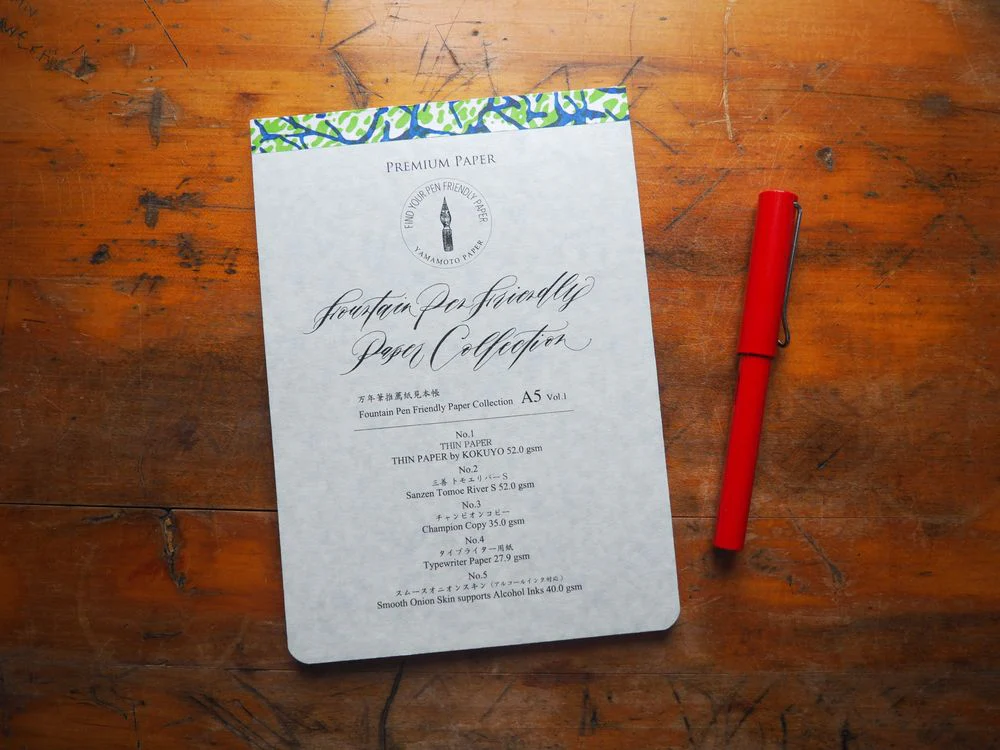 PREMIUM PAPER
FIND YOUR PEN FRIENDLY PAPER
YAMAMOTO PAPER
Fountain Pen Friendly
Paper Collection
万年筆推薦紙見本帳
Fountain Pen Friendly Paper Collection A5 Vol.1
No.1
THIN PAPER
THIN PAPER by KOKUYO 52.0 gsm
No.2
三善 トモエリバーS
Sanzen Tomoe River S 52.0 gsm
No.3
チャンピオンコピー
Champion Copy 35.0 gsm
No.4
タイプライター用紙
Typewriter Paper 27.9 gsm
No.5
スムースオニオンスキン（アルコールインク対応）
Smooth Onion Skin supports Alcohol Inks 40.0 gsm